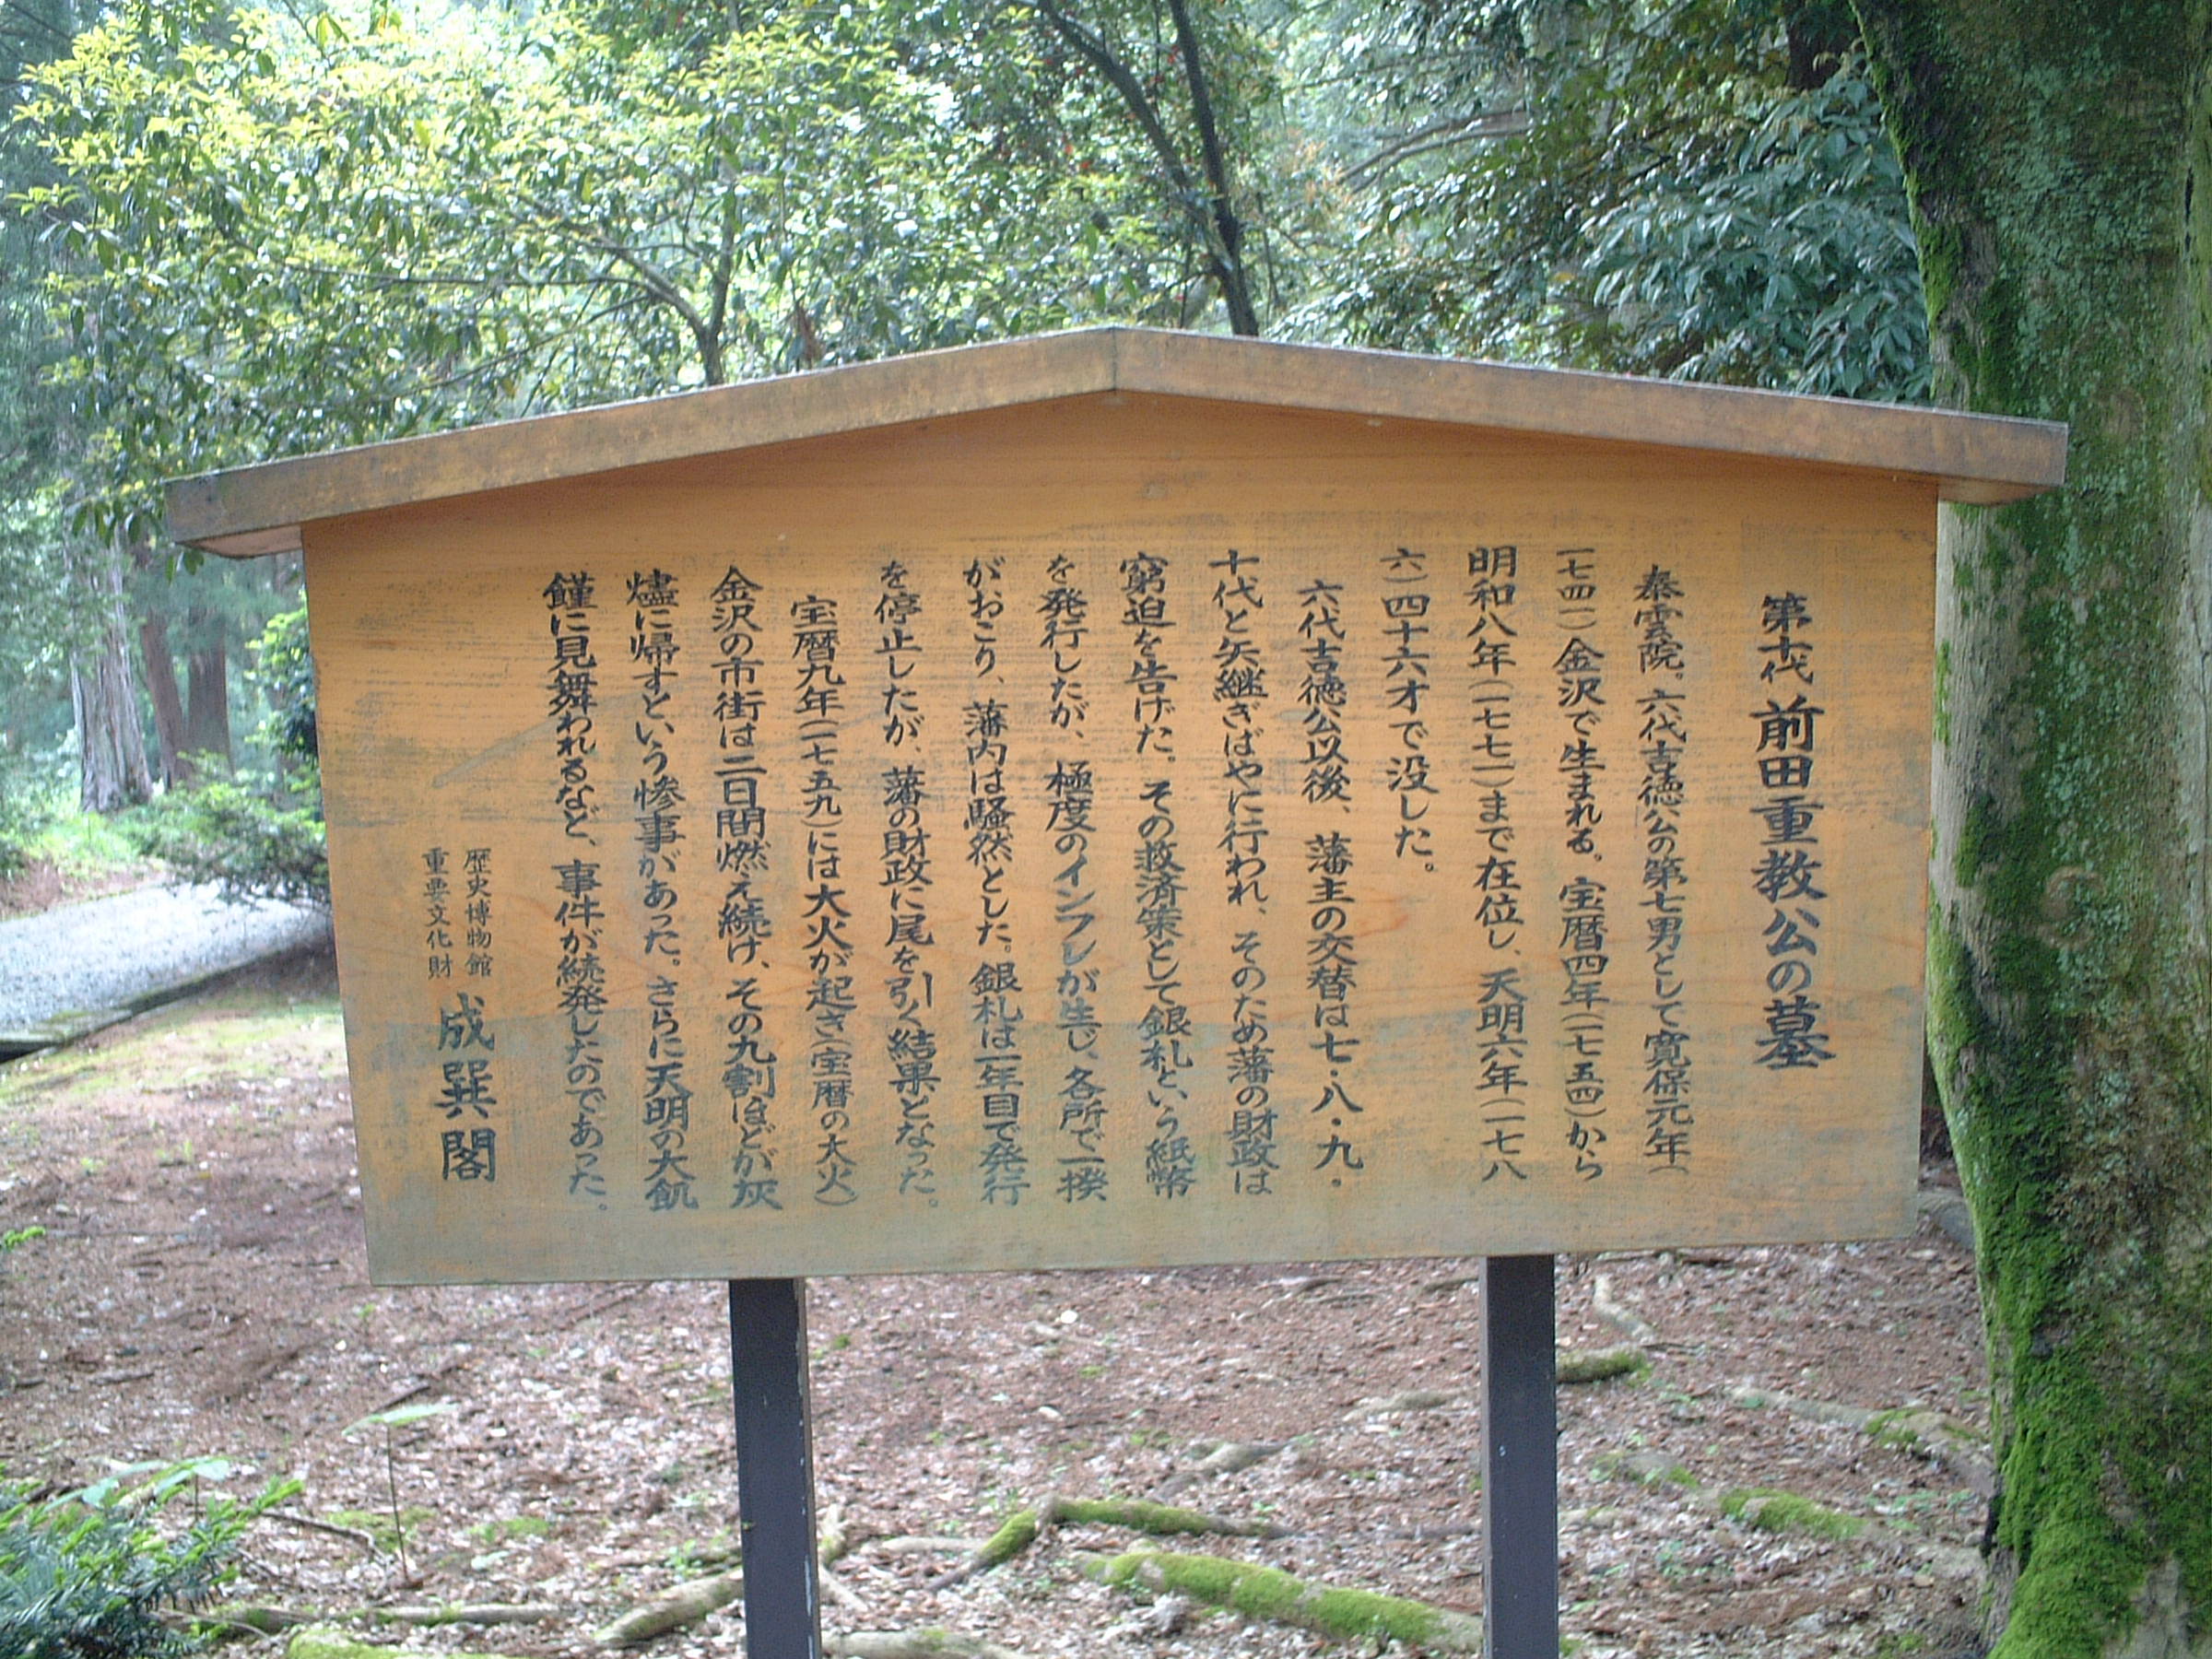 第十代 前田重教公の墓
泰雲院。六代吉徳公の第七男として寛保元年(
一七四一)金沢で生まれる。宝暦四年(一七五四)から
明和八年(一七七一)まで在位し、天明六年(一七八
六)四十六才で没した。
六代吉徳公以後、藩主の交替は七・八・九・
十代と矢継ぎばやに行われ、そのため藩の財政は
窮迫を告げた。その救済策として銀札という紙幣
を発行したが、極度のインフレが生じ、各所で一揆
がおこり、藩内は騒然とした。銀札は一年目で発行
を停止したが、藩の財政に尾を引く結果となった。
宝暦九年(一七五九)には大火が起き(宝暦の大火)
金沢の市街は二日間燃え続け、その九割ほどが灰
燼に帰すという惨事があった。さらに天明の大飢
饉に見舞われるなど、事件が続発したのであった。
歴史博物館
重要文化財
成巽閣